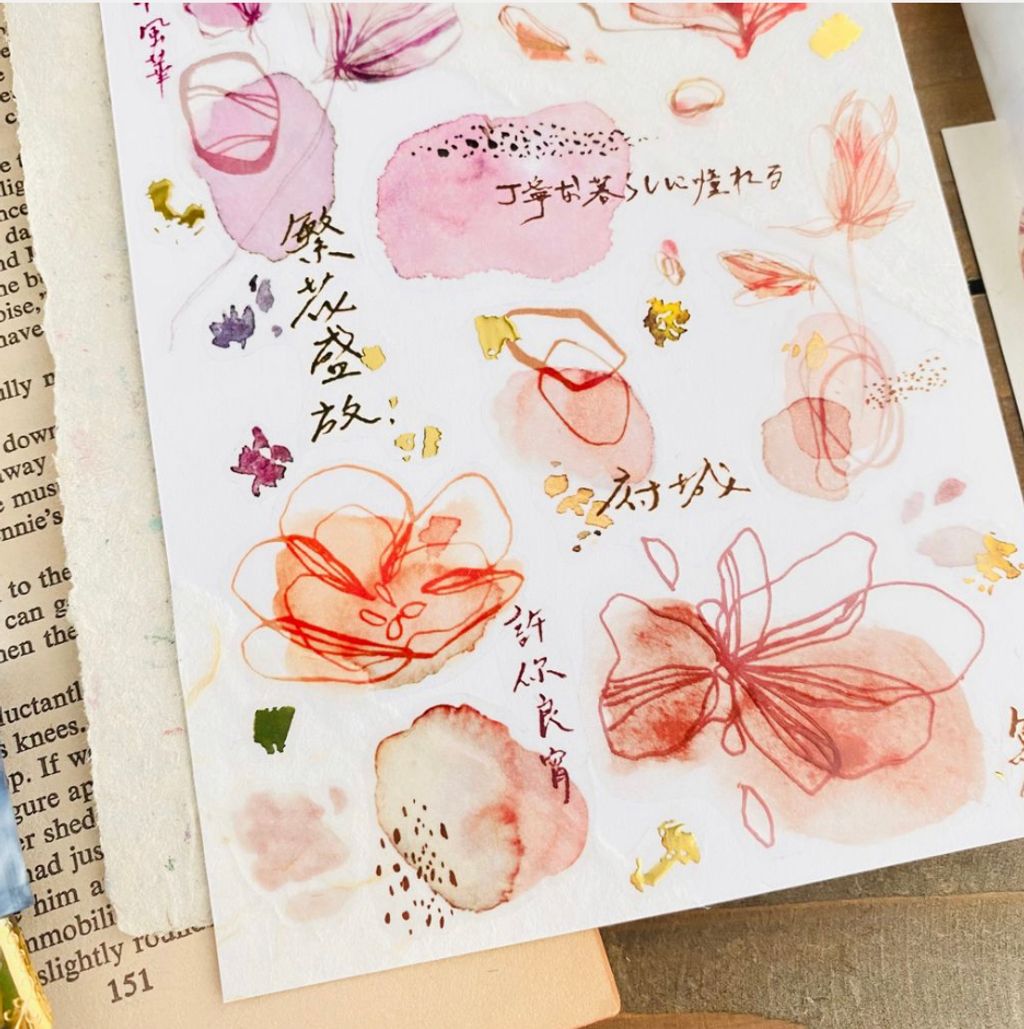 風華
丁寧な暮らしに憧れる
繁花盛放
府城
許你良宵
lully
down
away
mus
ennie's
to the
can g
hen the
luctantl
s knees.
p. If w
gure ap
er shed
had jus
him a
mmobili
slightly
151